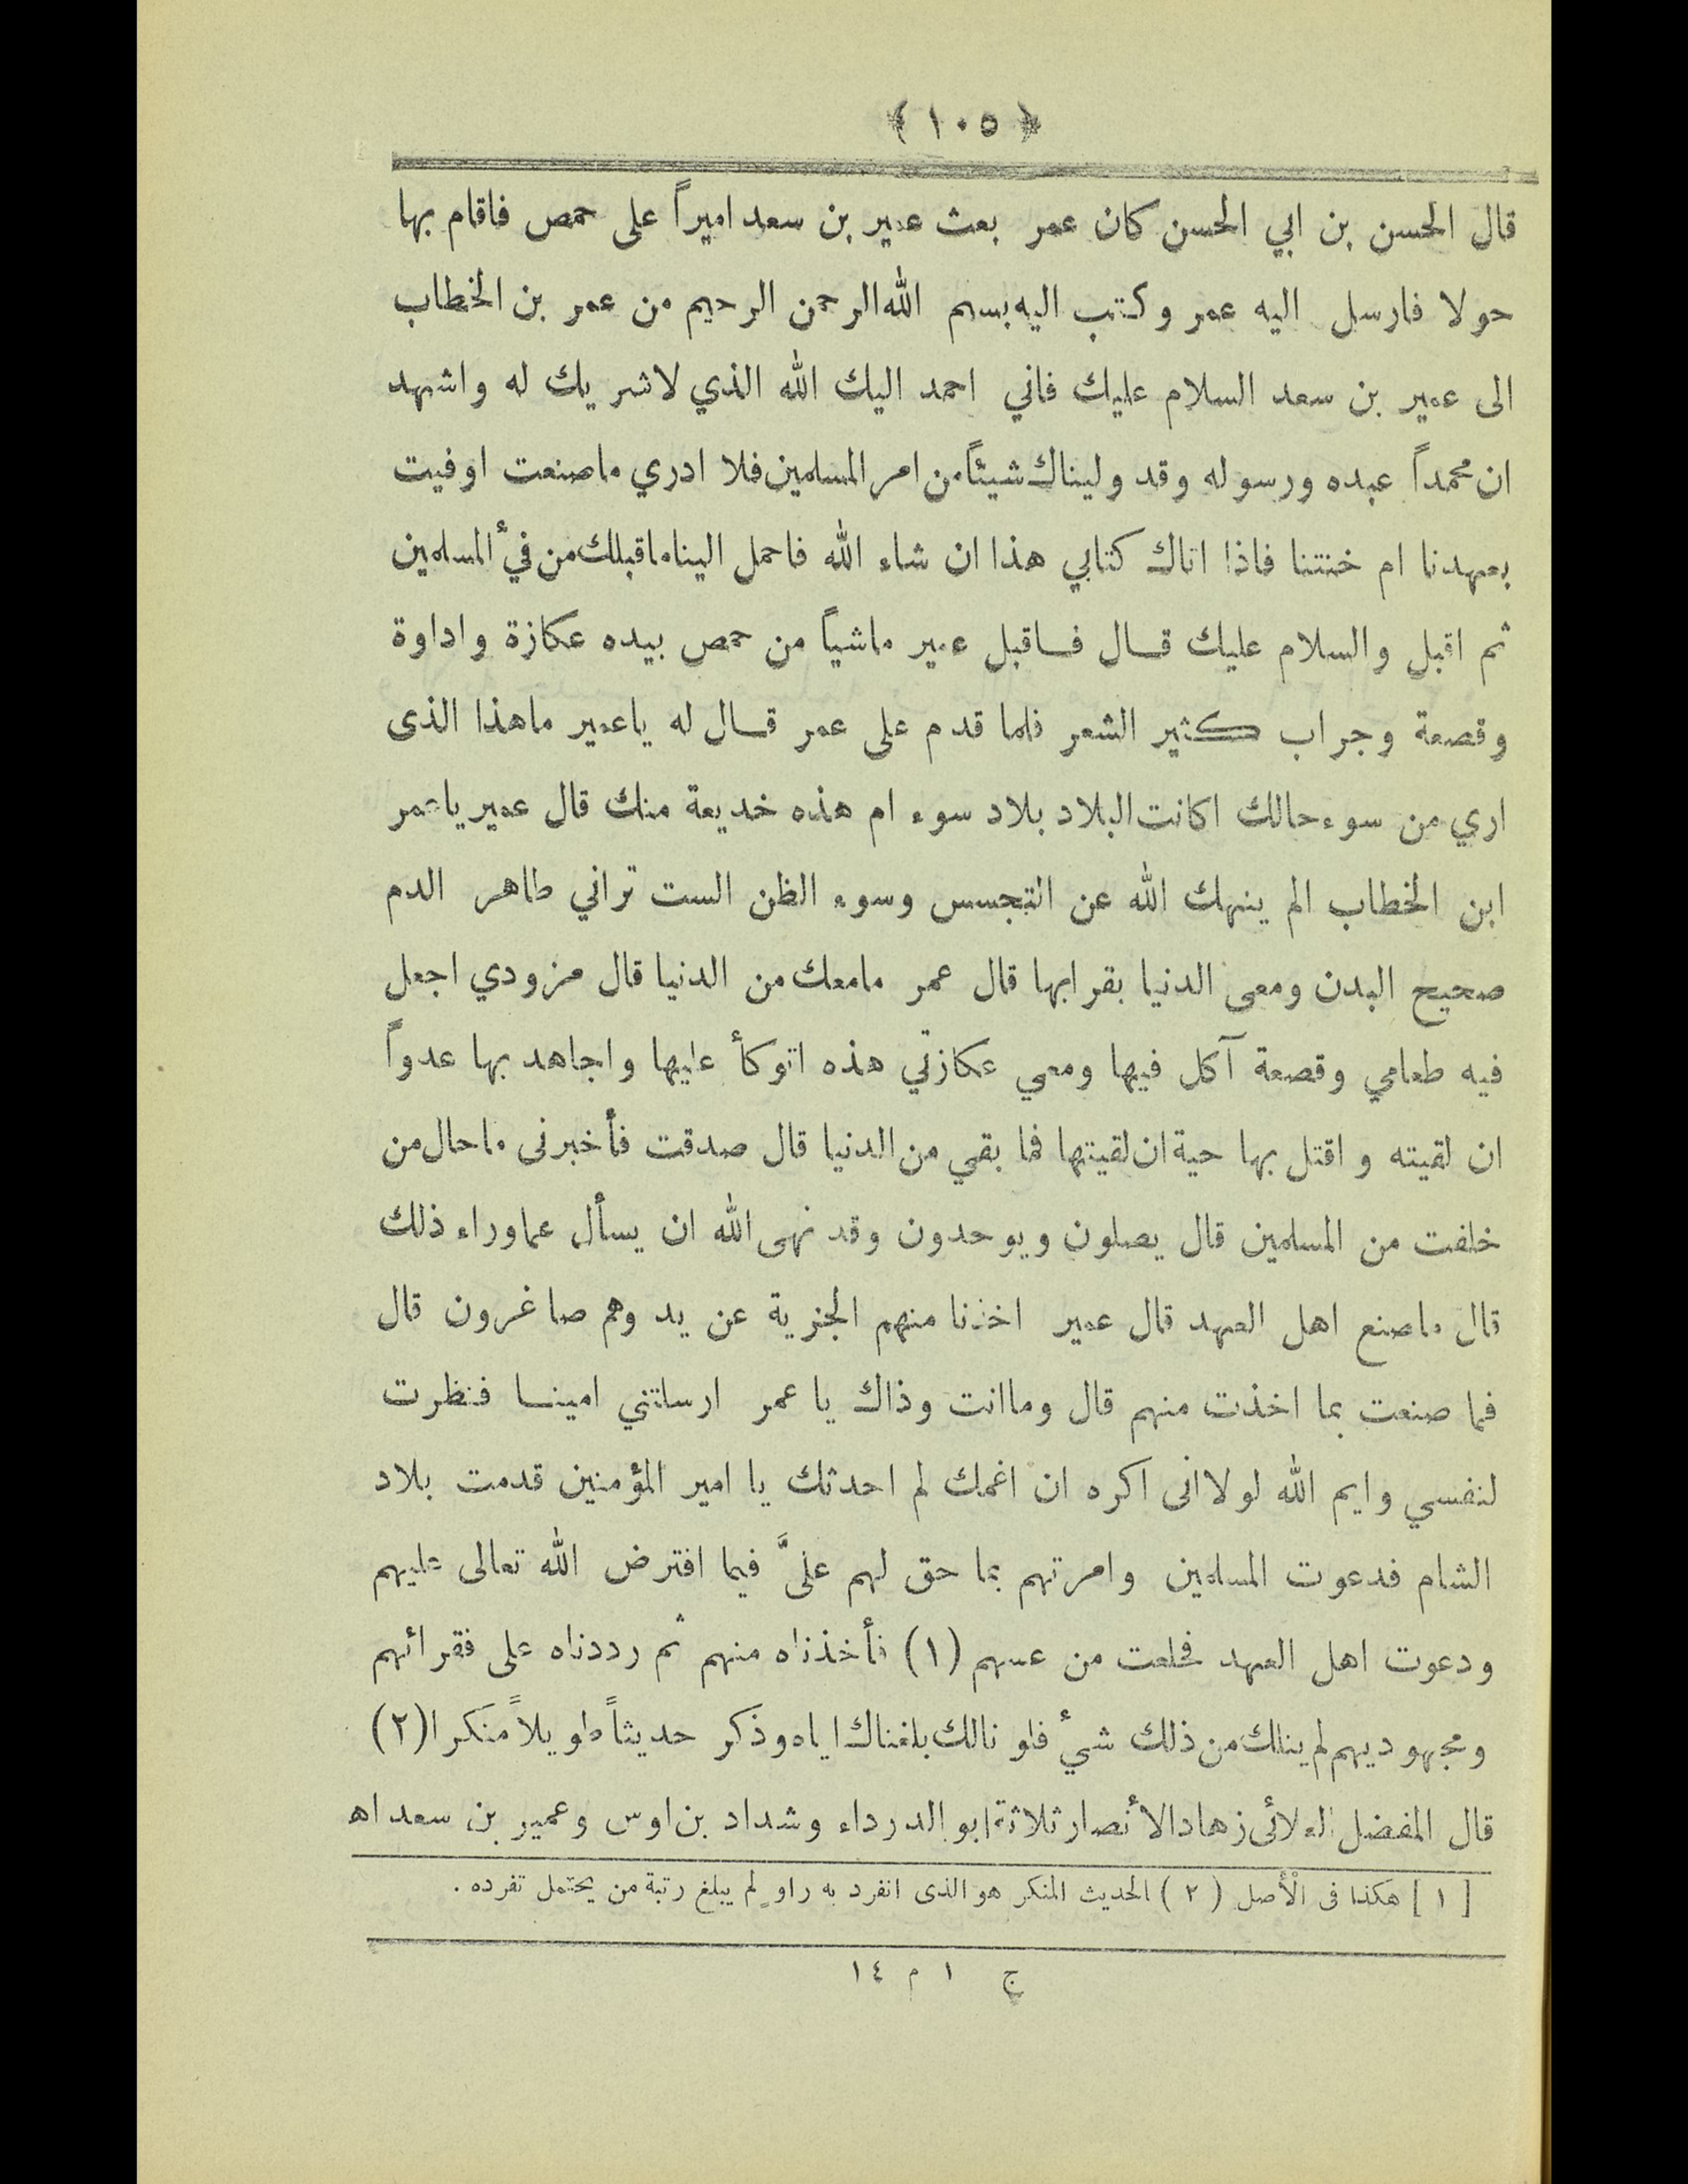 ﴿ ١٠٥ ﴾
قال الحسن بن ابي الحسن كان عمر بعث عمير بن سعد اميراً على حمص فاقام بها
حولا فارسل اليه عمر وكتب اليه بسم الله الرحمن الرحيم من عمر بن الخطاب
الى عمير بن سعد السلام عليك فاني احمد اليك الله الذي لاشريك له واشهد
ان محمداً عبده ورسوله وقد وليناك شيئاً من امر المسلمين فلا ادري ماصنعت اوفيت
بعهدنا ام خنتنا فاذا اتاك كتابي هذا ان شاء الله فاحمل الينا ماقبلك من فئ المسلمين
ثم اقبل والسلام عليك قال فاقبل عمير ماشياً من حمص بيده عكازة واداوة
وقصعة وجراب كثير الشعر فلما قدم على عمر قال له ياعمير ماهذا الذى
اري من سوء حالك اكانت البلاد بلاد سوء ام هذه خديعة منك قال عمير ياعمر
ابن الخطاب الم ينهك الله عن التجسس وسوء الظن الست تراني طاهر الدم
صحيح البدن ومعى الدنيا بقرابها قال عمر مامعك من الدنيا قال مزودي اجعل
فيه طعامي وقصعة آكل فيها ومعي عكازتي هذه اتوكأ عليها واجاهد بها عدواً
ان لقيته و اقتل بها حية ان لقيتها فما بقي من الدنيا قال صدقت فأخبرنى ماحال من
خلفت من المسلمين قال يصلون ويوحدون وقد نهى الله ان يسأل عما وراء ذلك
قال ماصنع اهل العهد قال عمير اخذنا منهم الجزية عن يد وهم صاغرون قال
فما صنعت بما اخذت منهم قال وماانت وذاك يا عمر ارسلتني امينا فنظرت
لنفسي وايم الله لولاانى اكره ان اغمك لم احدثك يا امير المؤمنين قدمت بلاد
الشام فدعوت المسلمين وامرتهم بما حق لهم علىَّ فيما افترض الله تعالى عليهم
ودعوت اهل العهد فخلعت من عسهم (١) فأخذناه منهم ثم رددناه على فقرائهم
ومجهوديهم لم ينلك من ذلك شئ فلو نالك بلغناك اياه وذكر حديثاً طويلاً منكرا(٢)
قال المفضل العلائى زهاد الأنصار ثلاثة ابو الدرداء وشداد بن اوس وعمير بن سعد اه
[ ١ ] هكذا فى الأصل ( ٢ ) الحديث المنكر هو الذى انفرد به راوٍ لم يبلغ رتبة من يحتمل تفرده .
ج ١ م ١٤